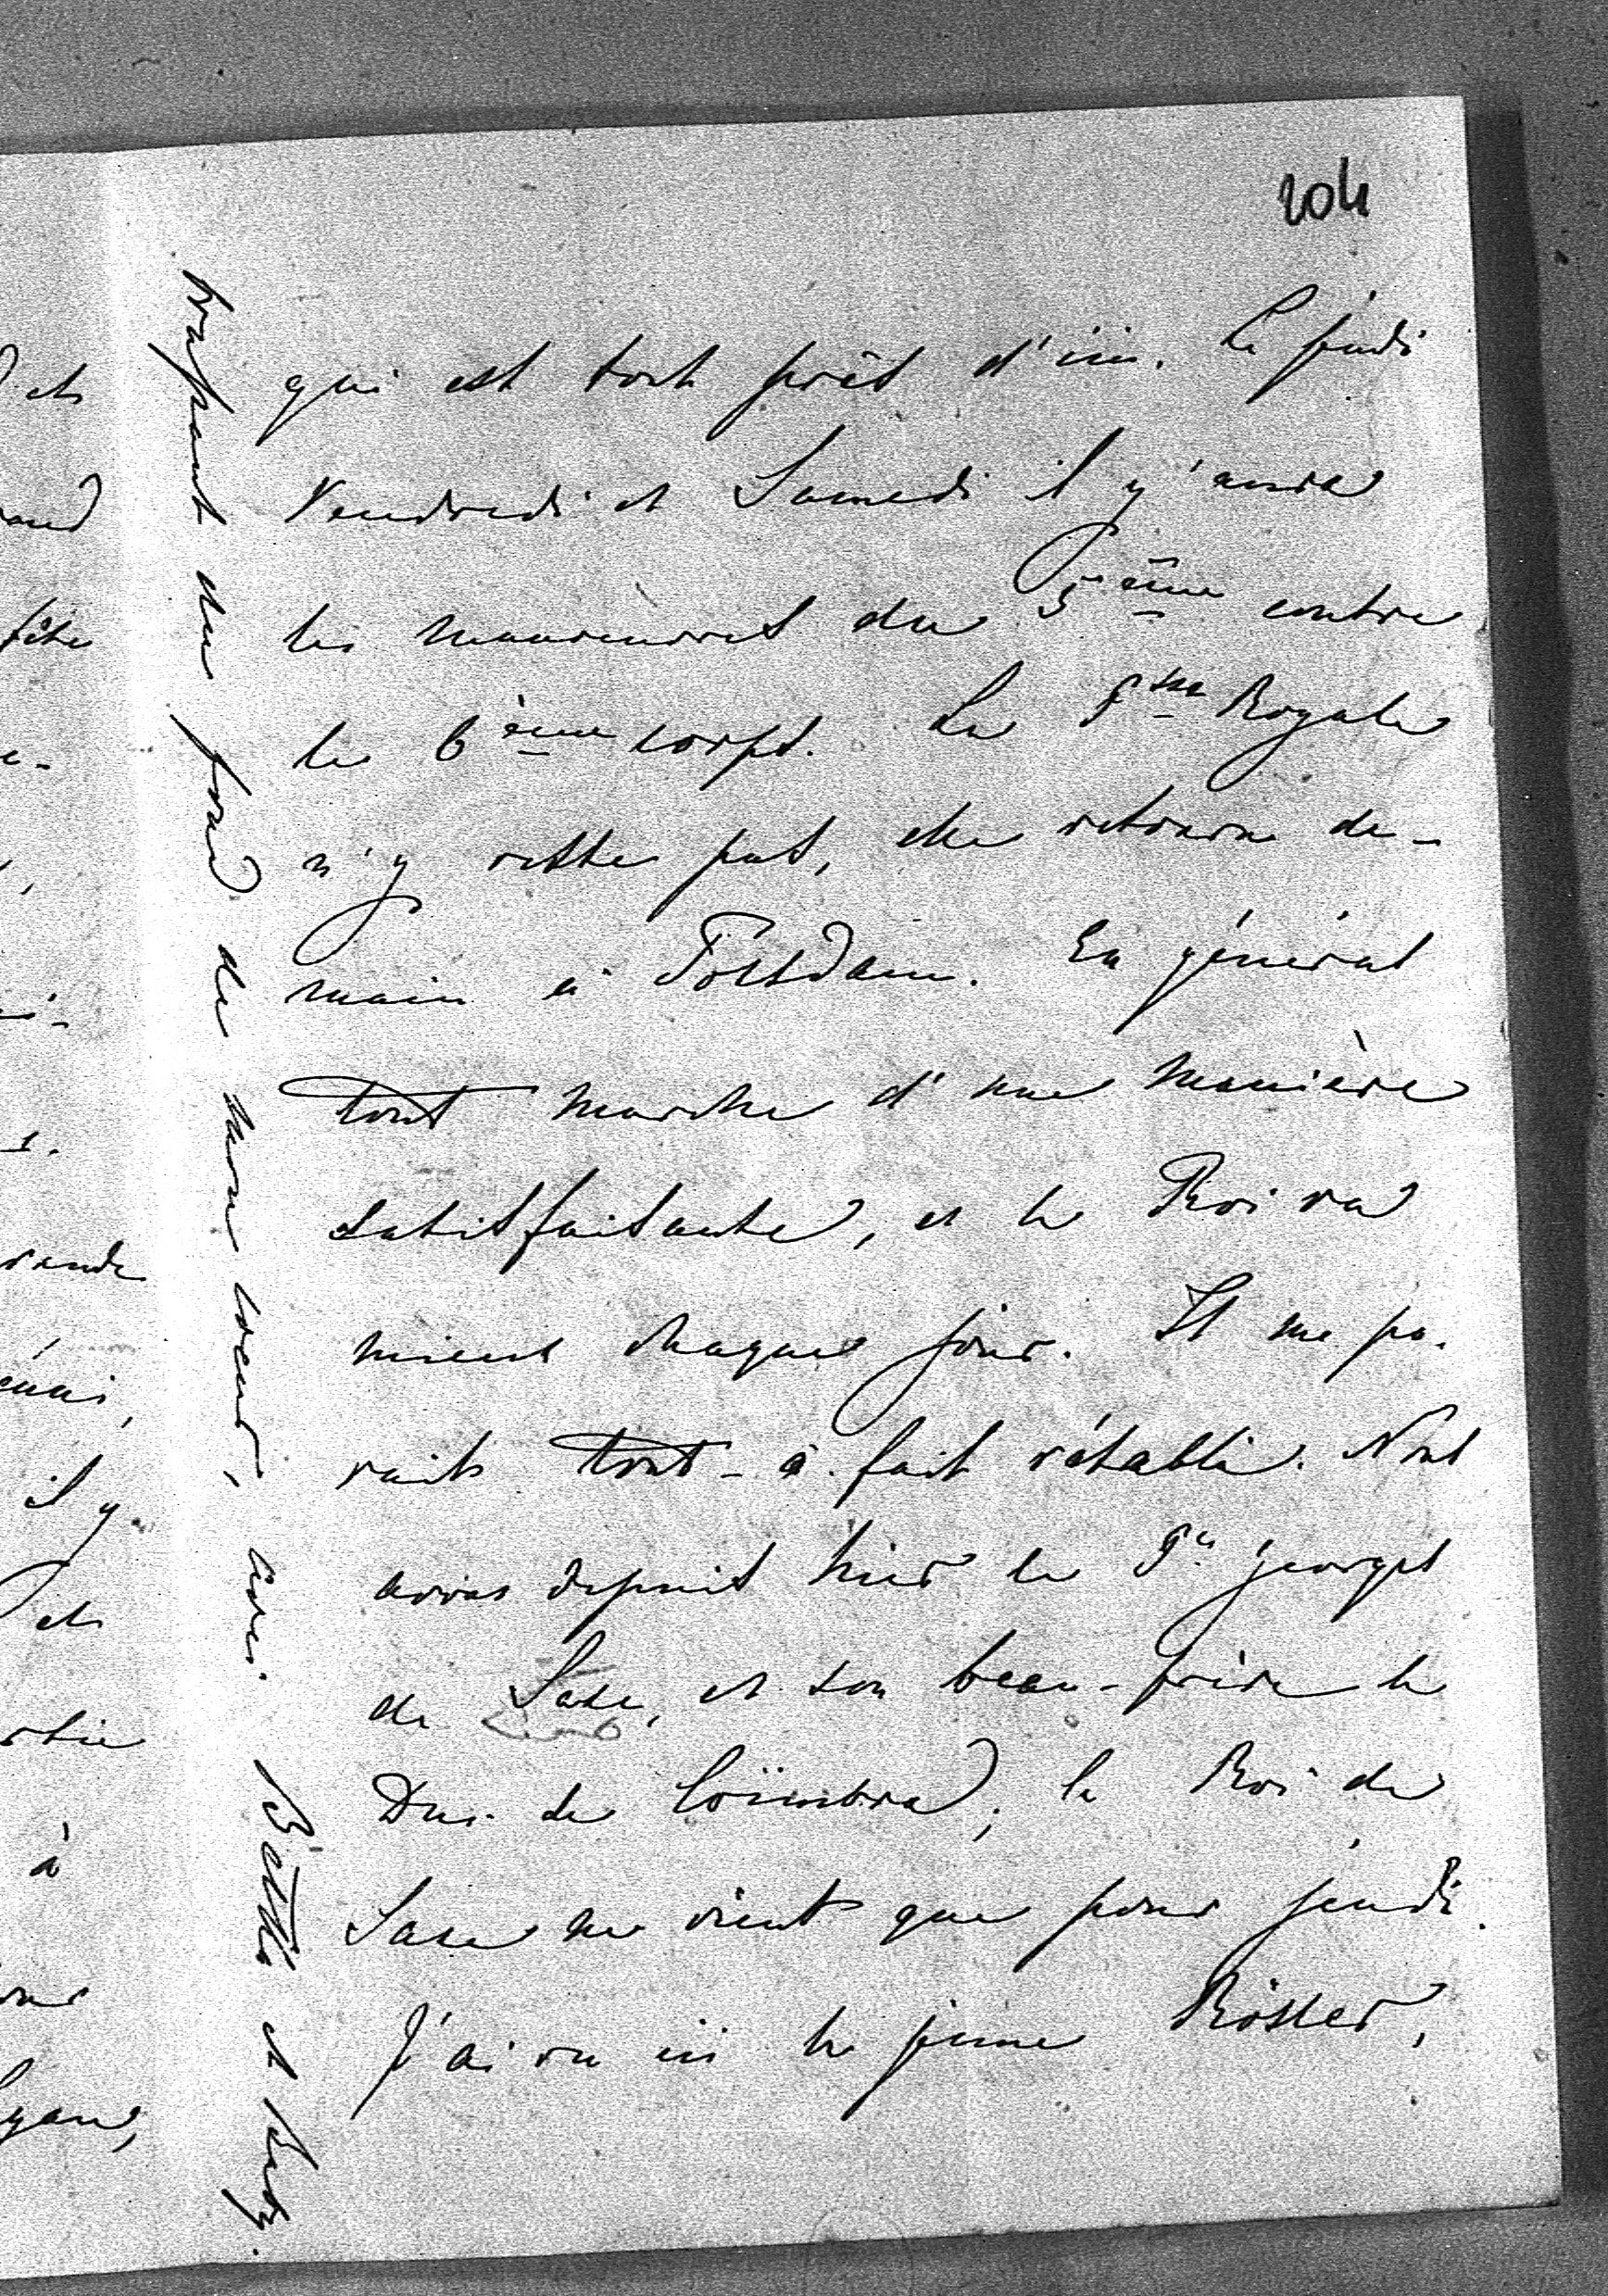 204
qui est tout prèt d'ici. Le jeudi
Vendredi et Samedi il y'aura
les manoeuvres du 5ième contre
le 6ième corps. La Psse Royale
n'y reste pas, elle retourne de-
main à Potsdam. En général
tout marche d'une manière
satisfaisante, et le Roi va
mieux chaque jour. Il me pa-
rait tout-à-fait rétabli. Nous
avons depuis hier le Pce Georges
de Saxe, et son beau-frère le
Duc de Coïmbra; le Roi de
Saxe ne vient que pour jeudi.
J'ai vu ici le jeune Rösler,
du fond de mon coeur,
et
and
fête
e-
rande
il y
et
rtie
à